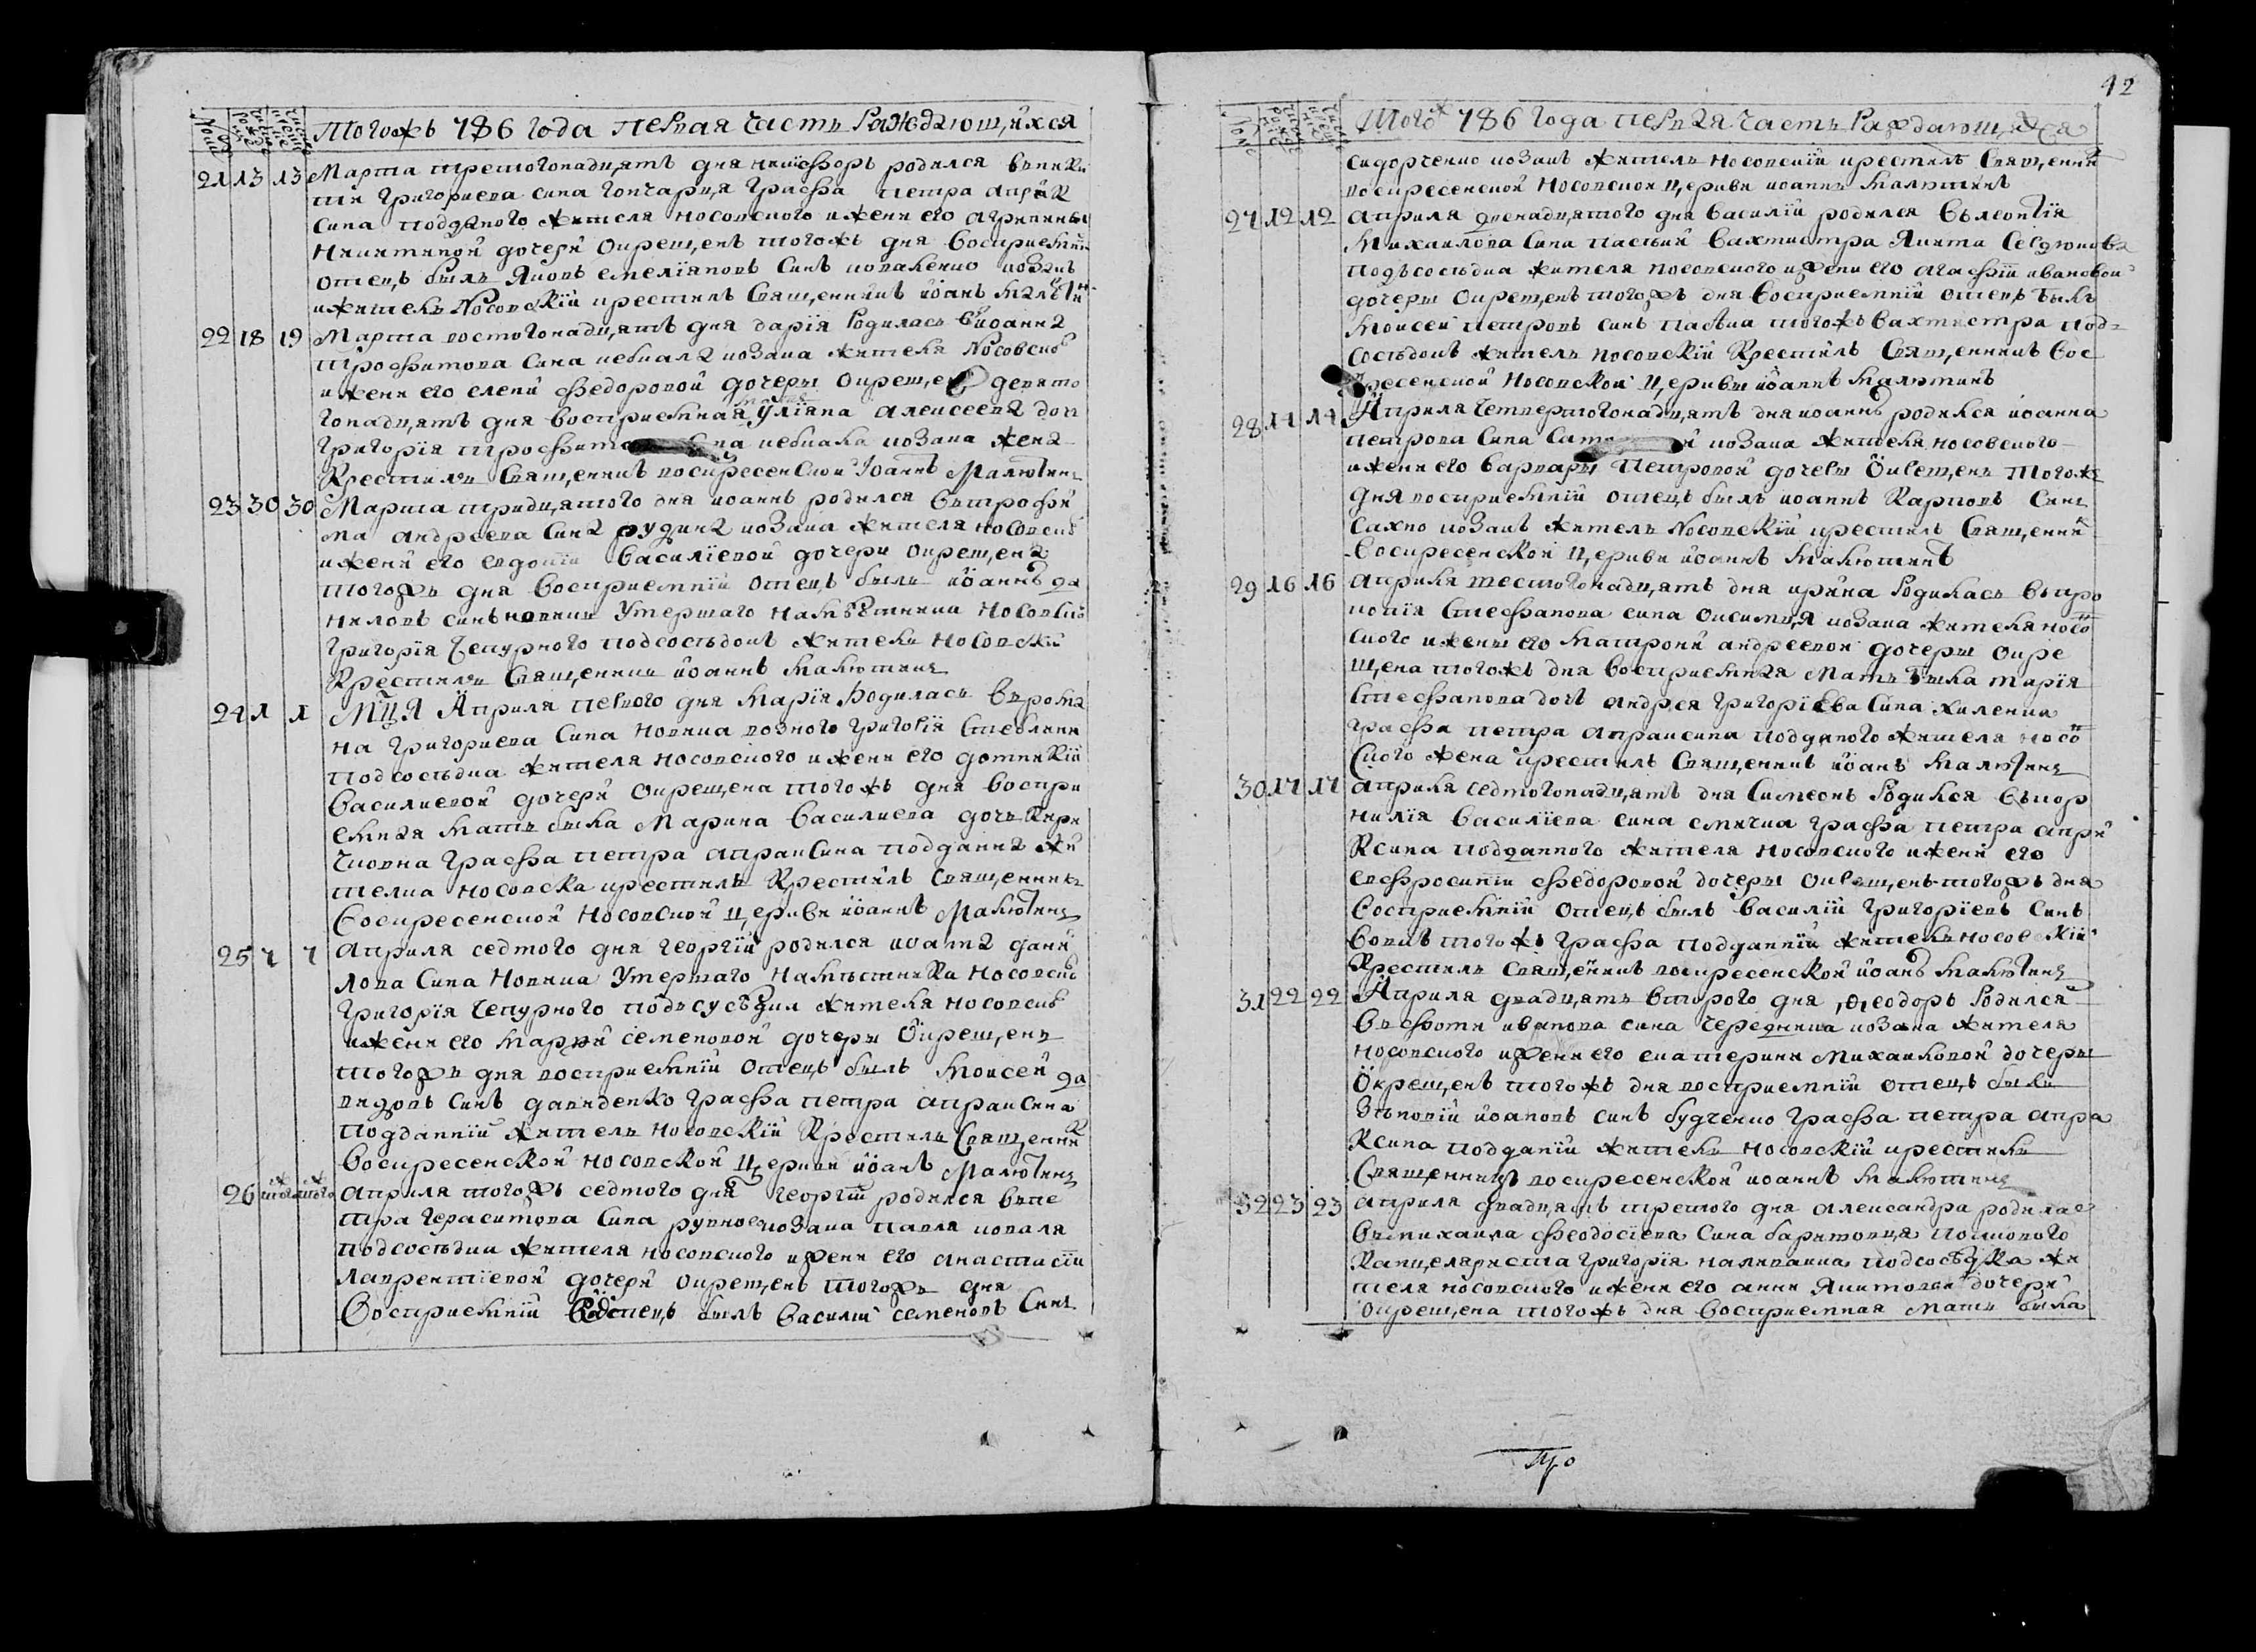 Тогожъ 786 года первая часть раждающихся
21 13 13 Марта третогонадцять дня никифоръ родился въ
ти григориева сина гончарця графа петра апрак
сина подданого жителя носовского и жени его агрипины
никитиной дочери окрещенъ тогожъ дня восприемний
отецъ былъ яковъ емелїановъ синъ коваленко козакъ
и житель Носовскїй крестилъ священникъ иоанъ малютин
22 18 19 Марта востогонадцять дня дарїя родилась въ иоанна
трофимова сина кебкала козака жителя Носовско
и жени его елени федоровой дочеры окрещена девято
гонадцять дня восприемная мать улїяна алексеева доч
григорїя трофимова сина кебкала козака жена
крестилъ священникъ воскресенской Iоаннъ Малютинъ
23 30 30 Марта тридцятого дня иоаннъ родился въ трофи
ма андреева сина рудика козака жителя носовско
и жени его евдокїи василїевой дочери окрещена
тогожъ дня восприемнїй отецъ былъ иоаннъ да
ниловъ синъ новикъ умершаго намѣстника носовско
григорїя чепурного подсосѣдокъ житель носовскїй
крестилъ священникъ иоаннъ малютинъ
24 1 1 Мца Априля первого дня марїя родилась въ рома
на григориева сина новика возного григорїя стеблика
подсосѣдка жителя носовского и жени его домникїи
василиевой дочери окрещена тогожъ дня воспри
емная мать была Марина василиева дочь кири
чковна графа петра апраксина подданна жи
телка носовска крестилъ крестилъ священникъ
воскресенской носовской церкви иоаннъ Малютинъ
25 7 7 априля седмого дня георгїй родился иоанна дани
лова сина новика умершаго намѣстника носовско
григорїя чепурного подъсусѣдка жителя носовско
и жени его марїи семеновой дочеры окрещенъ
тогожъ дня восприемнїй отецъ былъ моисей да
видовъ синъ давиденко графа петра апраксина
подданнїй житель носовскїй крестилъ священник
воскресенской носовской церкви иоанъ Малютинъ
26 того того априля тогожъ седмого дня георгїй родился въ пе
тра герасимова сина козака павла коваля
подсосѣдка жителя носовского и жени его анастасїи
лаврентїевой дочери окрещенъ тогожъ дня
восприемнїй отецъ былъ василий семеновъ синъ
12
Того 786 года первая часть раждающихся
сидорченко козакъ житель носовскїй крестилъ священник
воскресенской носовской церкви иоаннъ малютинъ
27 12 12 априля двенадцятого дня василїй родился въ леонтїя
михаилова сина пасѣки вахмистра якима
подъсосѣдка жителя носовского и жени его агафїи ивановой
дочеры окрещенъ тогожъ дня восприемнїй отецъ былъ
моисей петровъ синъ пасѣка тогожъ вахмистра под-
сосѣдокъ житель носовскїй крестилъ священникъ вос
кресенской носовской церквы иоаннъ малютинъ
28 14 14 Априля четвертогонадцять дня иоаннъ родился иоанна
петрова сина козака жителя носовского
и жени его варвары петровой дочеры окрещенъ тогожъ
дня восприемнїй отецъ былъ иоаннъ карповъ синъ
сахно козакъ житель Носовскїй крестилъ священник
воскресенской церкви иоаннъ малютинъ
29 16 16 априля шестогонадцять дня ирина родилась въ про
копїя стефанова сина козака жителя носо
ского и жены его матрони андреевой дочеры окре
щена тогожъ дня восприемная мать была марїя
стефанова дочь андрея григорїева сина хиленка
графа петра апраксина подданого жителя носо
ского жена крестилъ священникъ иоанъ малютинъ
30 17 17 априля седмогонадцять дня симеонъ родился въ кор
нилїя василїева сина графа петра апра
ксина подданного жителя носовского и жени его
евфросинїи федоровой дочеры окрещенъ тогожъ дня
восприемнїй отецъ былъ василїй григорїевъ синъ
вовкъ тогожъ графа подданнїй житель носовскїй
крестилъ священникъ воскресенской иоанъ малютинъ
31 22 22 Априля двадцять второго дня ѳеодоръ родился
въ фоти иванова сина чередника козака жителя
носовского и жени его екатерини михаиловой дочеры
окрещенъ тогожъ дня восприемнїй отецъ былъ
зѣновїй иоановъ синъ будченко графа петра апра
ксина подданїй житель носовскїй крестилъ
священникъ воскресенской иоаннъ малютинъ
32 23 23 априля двадцять третого дня александра родилас
въ михаила феодосїева сина полкового
канцеляриста григорїя подсосѣдка жи
теля носовского и жени его анни якимовой дочери
окрещена тогожъ дня восприемная мать была